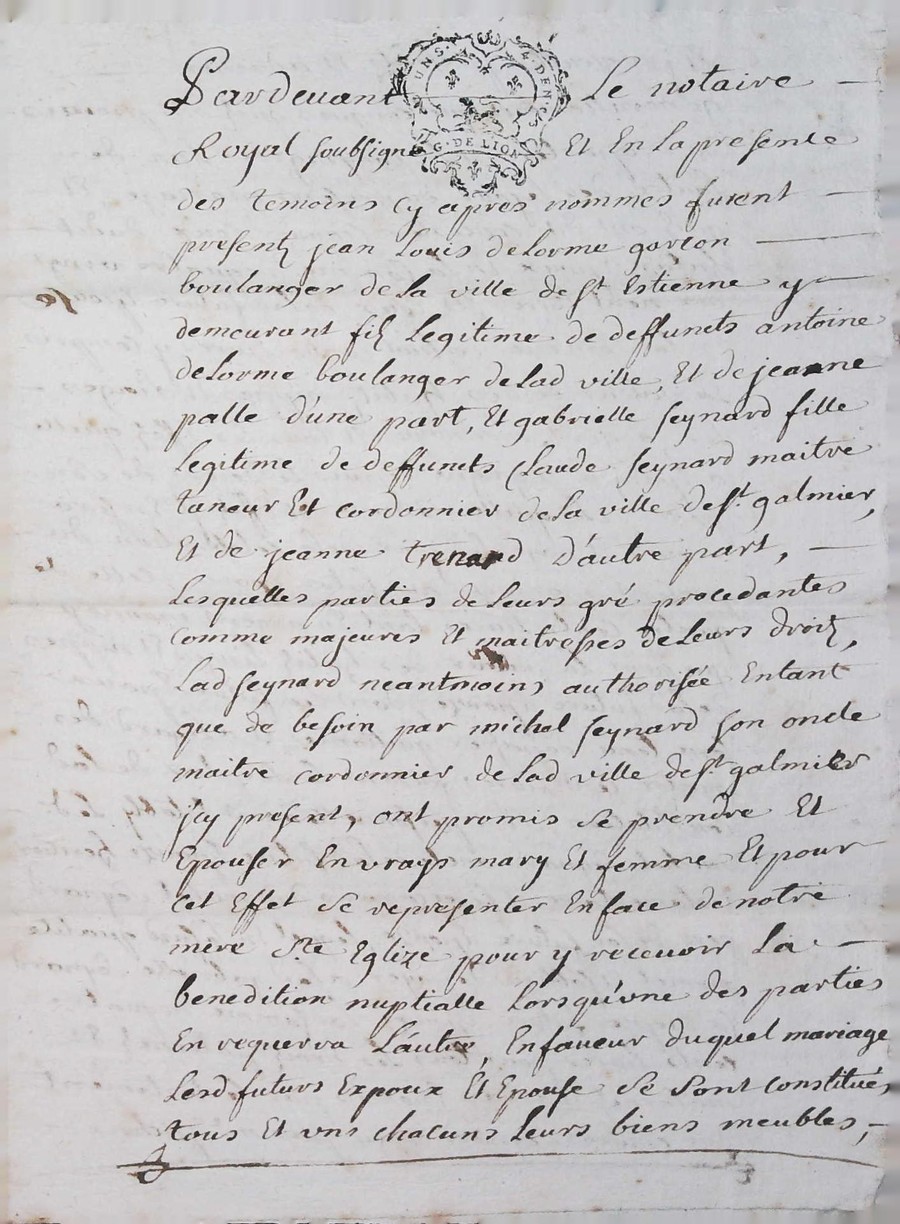 Pardevant Le notaire
Royal soubsigné Et En la presente
G. DE LION
des temoins cy apres nommes furent
present jean Louis delorme garcon
boulanger de la ville de st Estienne y
demeurant fils Legitime de deffuncts antoine
delorme boulanger de lad ville, Et de jeanne
palle d'une part, Et gabrielle seynard fille
Legitime de deffuncts Claude seynard maitre
taneur Et cordonnier de la ville de st galmier,
Et de jeanne trenard d'autre part,
Lesquelles parties de Leurs gré procedantes
comme majeures Et maitresses de Leurs droits,
Lad seynard neantmoins authorisée Entant
que de besoin par michel seynard son oncle
maitre cordonnier de Lad ville de st galmier
jcy present, ont promis se prendre Et
Epouser En vrays mary Et femme Et pour
cet Effet se representer En face de notre
mere ste Eglize pour y recevoir La
benedition nuptialle Lorsqu'une des parties
En requerra L'autre, En faveur duquel mariage
Lesd futurs Expoux Et Epouse se sont constitués
tous Et uns chacuns Leurs biens meubles,